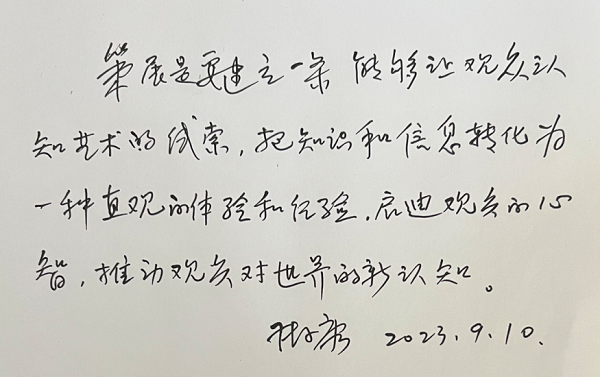 策展是要建立一条能够让观众认
知艺术的线索，把知识和信息转化为
一种直观的体验和经验，启迪观众的心
智，推动观众对世界的新认知。
2023.9.10.